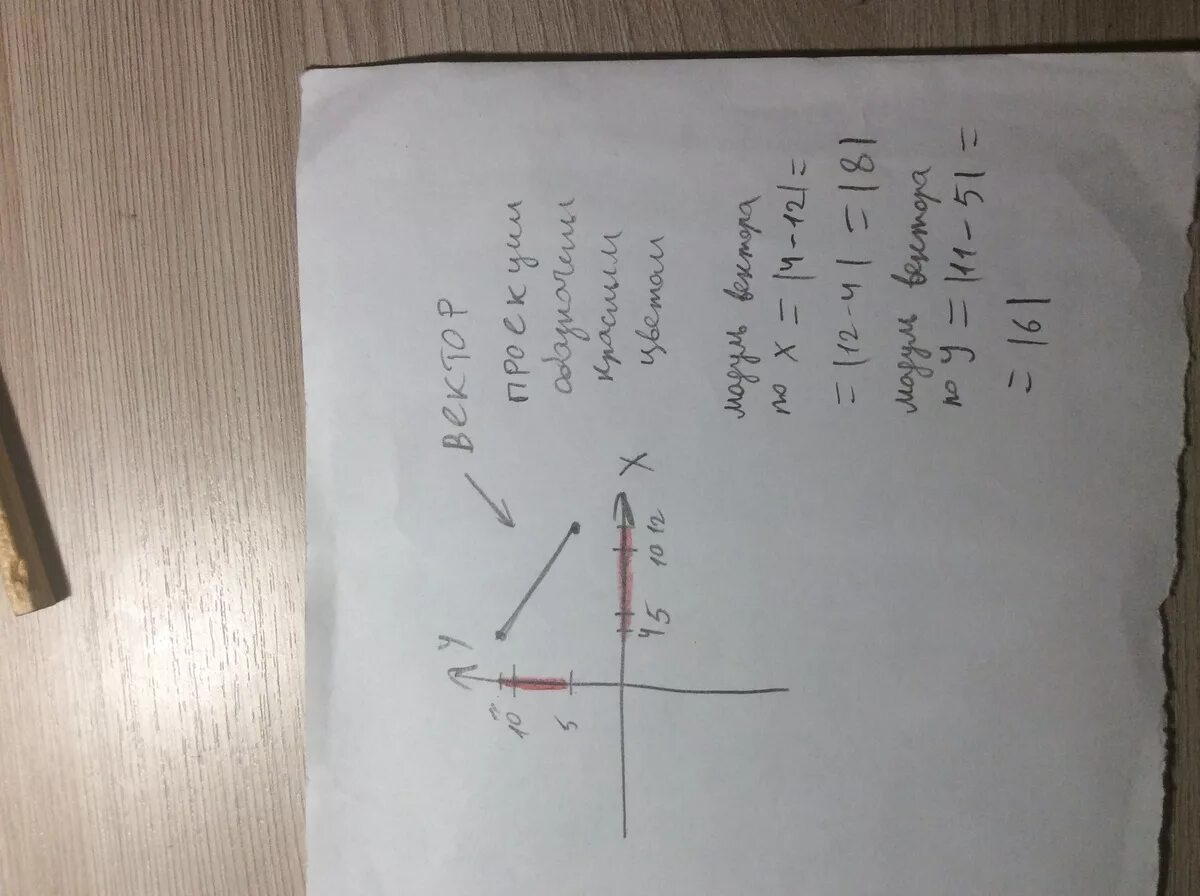 ВЕКТОР
ПРОЕКЦИИ
обозначены
красным
цветом
y
11
10
5
4 5
10 12
X
модуль вектора
по X = |4-12| =
= |12-4| = |8|
модуль вектора
по y = |11-5| =
= |6|